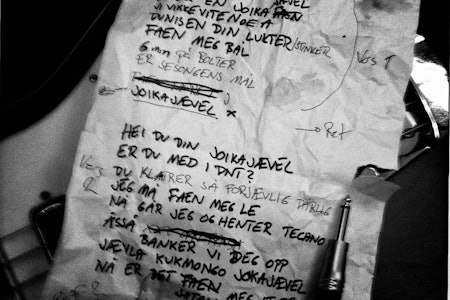 EN JOIKA FAEN
VI VIKKE VITE NOE A
DUNISEN DIN LUKTER/STINKER
FAEN MEG BÅL
6 mm på BOLTER
ER SESONGENS MÅL
JOIKAJÆVEL x
Vers 1
→ Ref
HEI DU DIN JOIKAJÆVEL
ER DU MED I DNT?
Vers 2
DU KLATRER SÅ FORJÆVLIG DÅRLIG
JEG MÅ FAEN MEG LE
NÅ GÅR JEG OG HENTER TECHNO
ÅSSÅ BANKER VI DEG OPP
JÆVLA KUKMONGO JOKAJÆVEL
NÅ ER DET FAEN
SATAN MEG